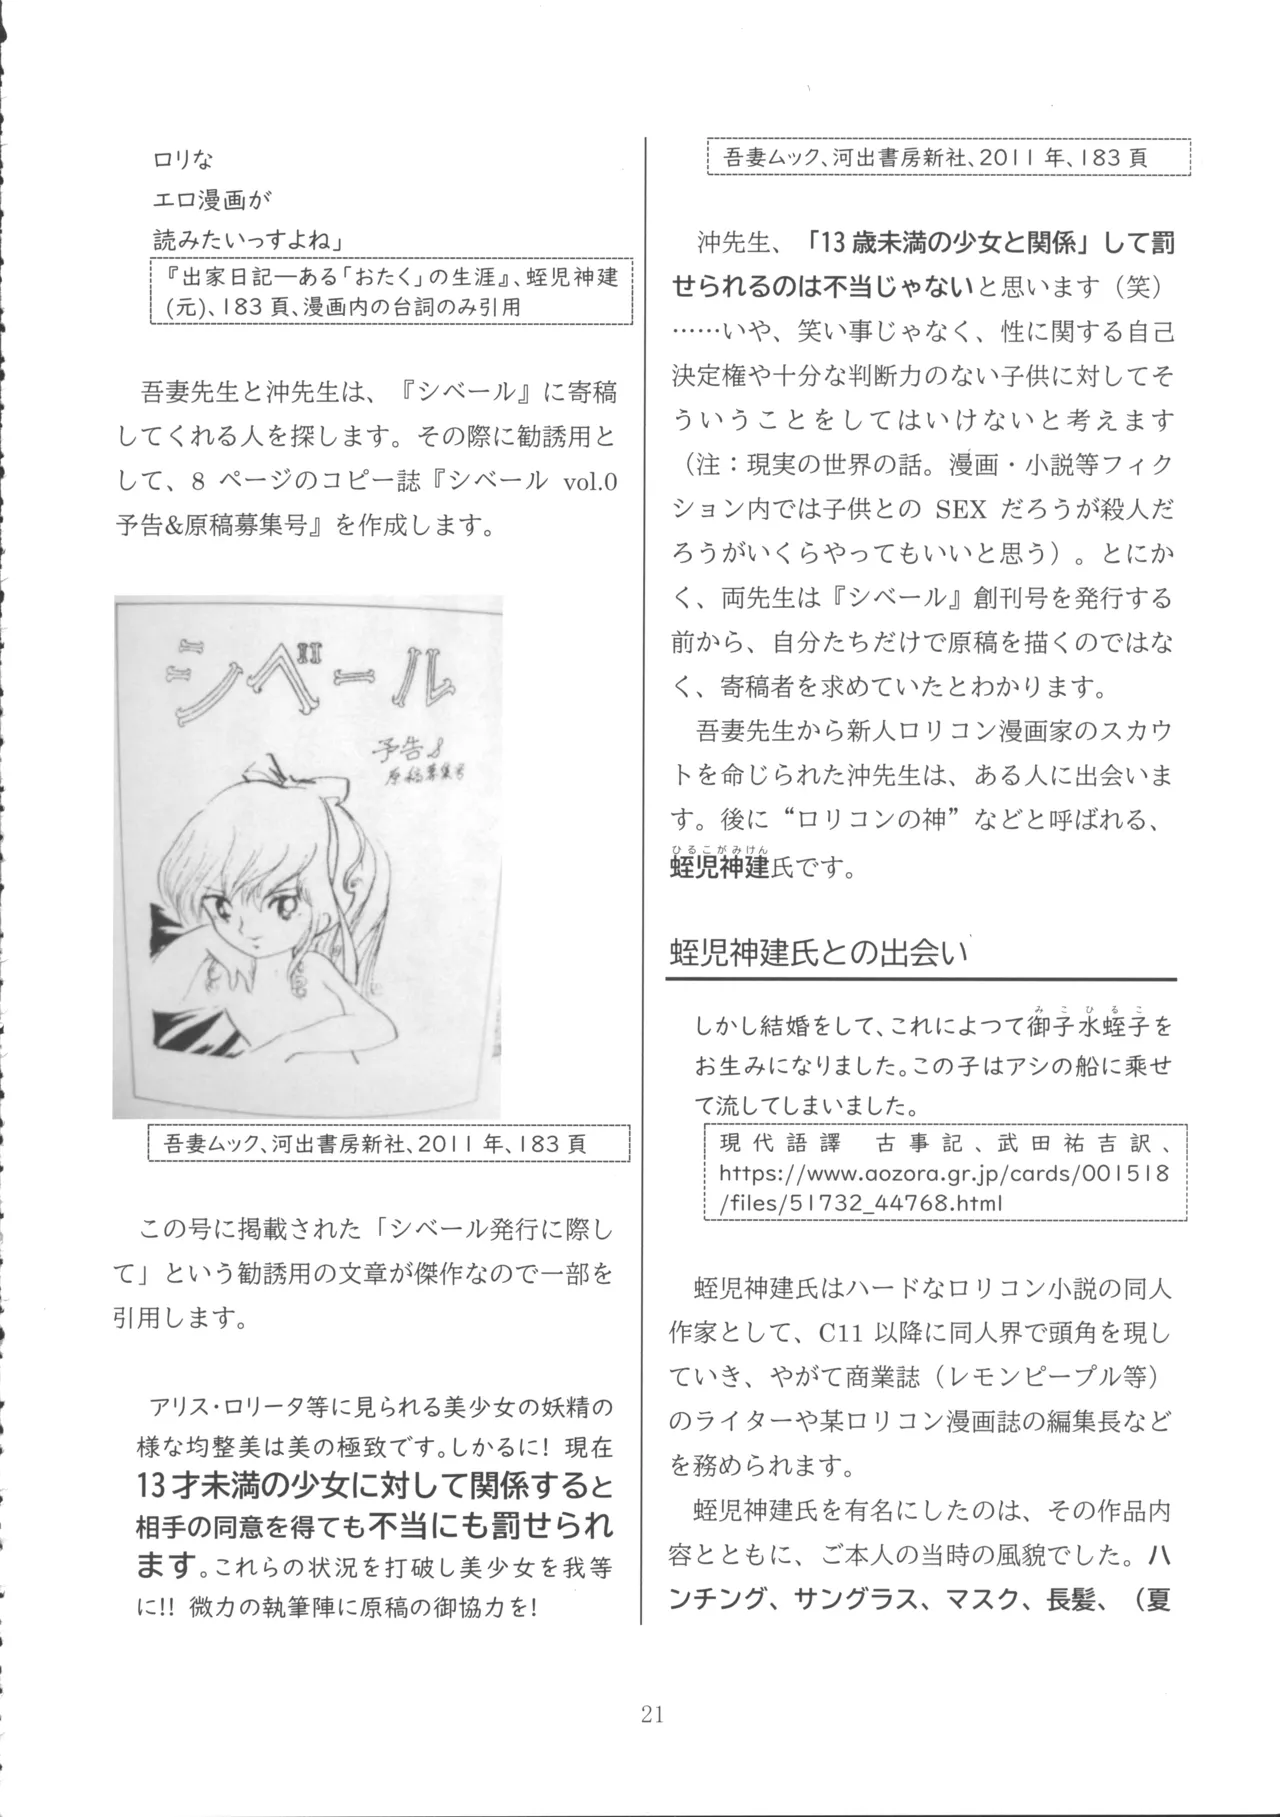 ロリな
エロ漫画が
読みたいっすよね」
『出家日記―ある「おたく」の生涯』、蛭児神建
(元)、183頁、漫画内の台詞のみ引用
吾妻先生と沖先生は、『シベール』に寄稿
してくれる人を探します。その際に勧誘用と
して、8 ページのコピー誌『シベール vol.0
予告&原稿募集号』を作成します。
シベール
予告&
原稿募集号
吾妻ムック、河出書房新社、2011年、183頁
この号に掲載された「シベール発行に際し
て」という勧誘用の文章が傑作なので一部を
引用します。
アリス・ロリータ等に見られる美少女の妖精の
様な均整美は美の極致です。しかるに! 現在
13才未満の少女に対して関係すると
相手の同意を得ても不当にも罰せられ
ます。これらの状況を打破し美少女を我等
に!! 微力の執筆陣に原稿の御協力を!
吾妻ムック、河出書房新社、2011年、183頁
沖先生、「13歳未満の少女と関係」して罰
せられるのは不当じゃないと思います（笑）
……いや、笑い事じゃなく、性に関する自己
決定権や十分な判断力のない子供に対してそ
ういうことをしてはいけないと考えます
（注：現実の世界の話。漫画・小説等フィク
ション内では子供との SEX だろうが殺人だ
ろうがいくらやってもいいと思う）。とにか
く、両先生は『シベール』創刊号を発行する
前から、自分たちだけで原稿を描くのではな
く、寄稿者を求めていたとわかります。
吾妻先生から新人ロリコン漫画家のスカウ
トを命じられた沖先生は、ある人に出会いま
す。後に“ロリコンの神”などと呼ばれる、
ひるこがみけん
蛭児神建氏です。
蛭児神建氏との出会い
みこひるこ
しかし結婚をして、これによつて御子水蛭子を
お生みになりました。この子はアシの船に乗せ
て流してしまいました。
現代語譯 古事記、武田祐吉訳、
https://www.aozora.gr.jp/cards/001518
/files/51732_44768.html
蛭児神建氏はハードなロリコン小説の同人
作家として、C11 以降に同人界で頭角を現し
ていき、やがて商業誌（レモンピープル等）
のライターや某ロリコン漫画誌の編集長など
を務められます。
蛭児神建氏を有名にしたのは、その作品内
容とともに、ご本人の当時の風貌でした。ハ
ンチング、サングラス、マスク、長髪、（夏
21